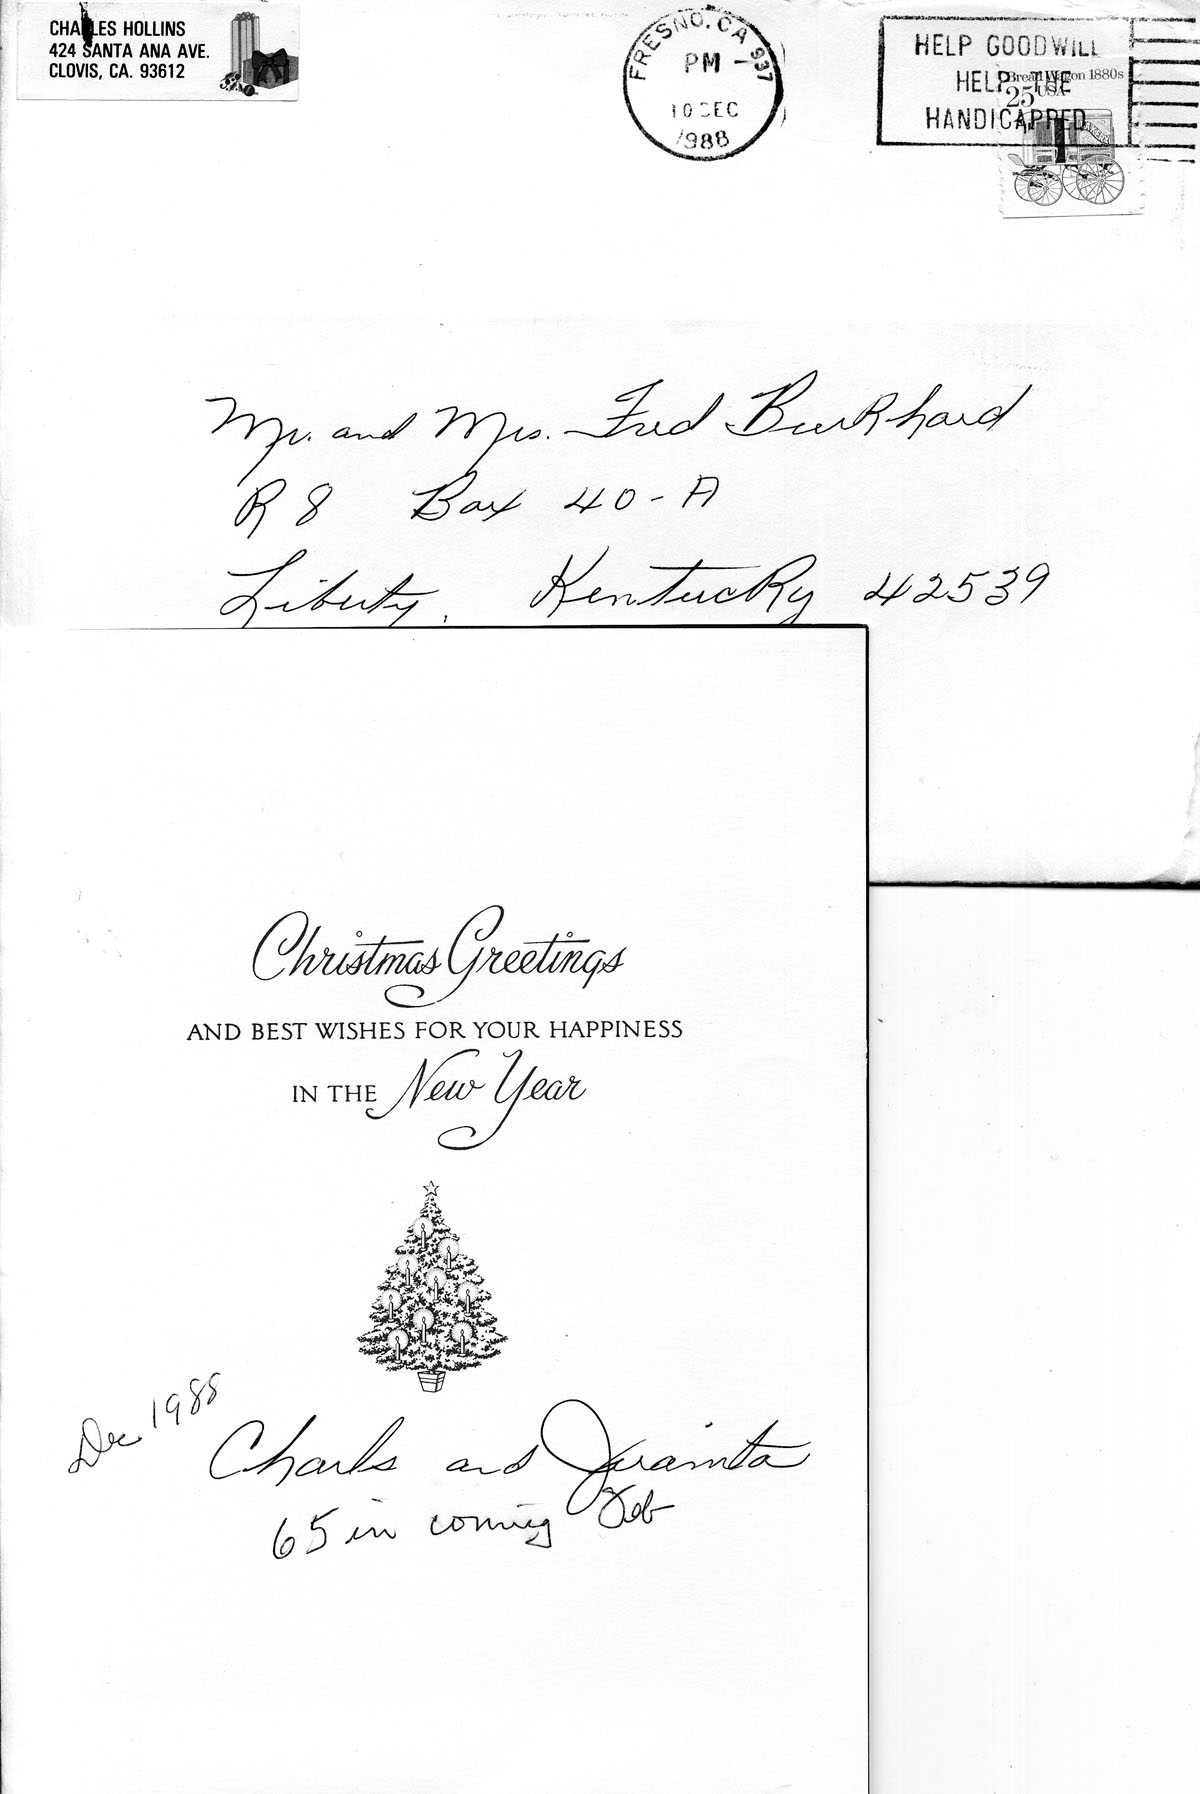 CHARLES HOLLINS
424 SANTA ANA AVE.
CLOVIS, CA. 93612
FRESNO, CA 937
PM
10 DEC
1988
HELP GOODWILL
HELP THE
HANDICAPPED
Bread Wagon 1880s
25 USA
Mr. and Mrs. Fred Burkhard
R 8 Box 40-A
Liberty, Kentucky 42539
Christmas Greetings
AND BEST WISHES FOR YOUR HAPPINESS
IN THE New Year
Dec 1988
Charls and Juainta
65 in coming Feb